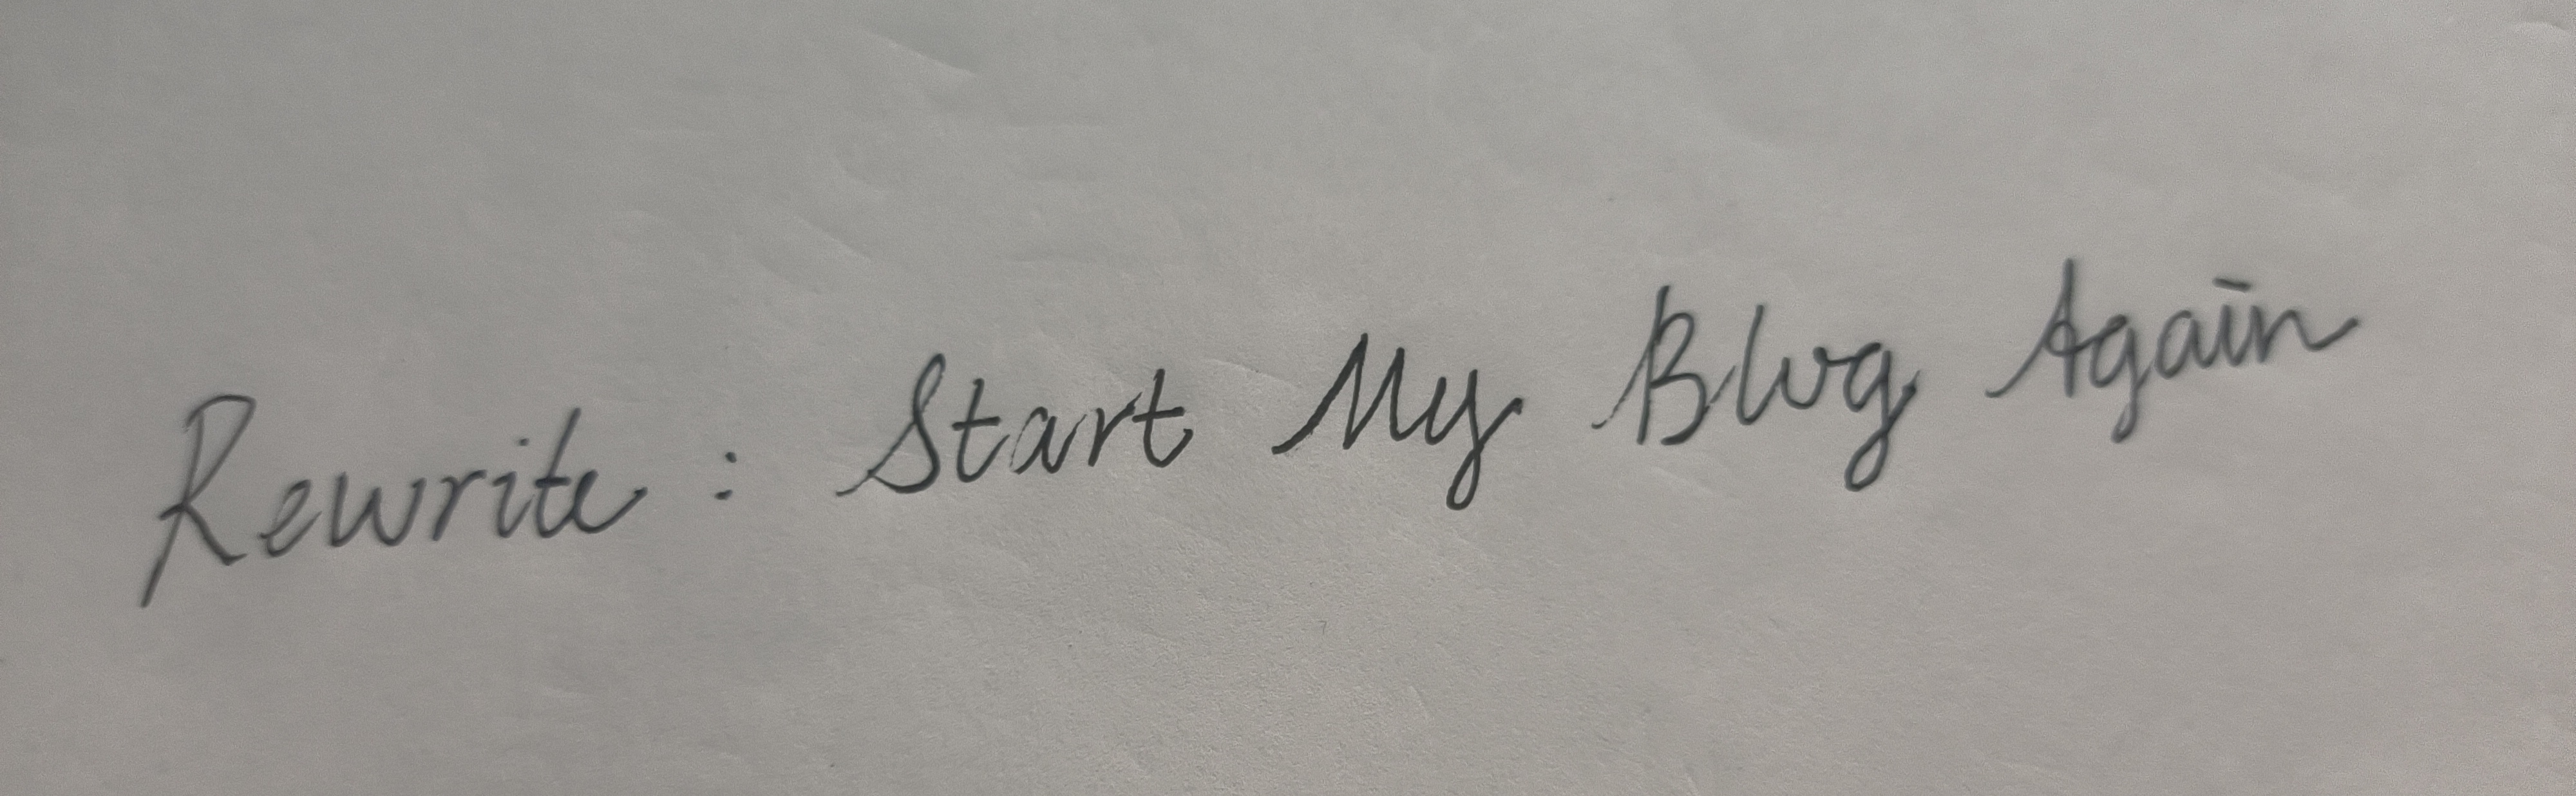 Rewrite : Start My Blog Again